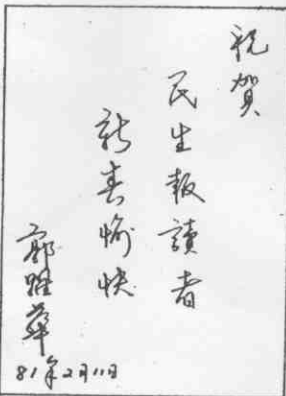 祝賀
民生報讀者
新春愉快
郭雅萍
81年2月11日